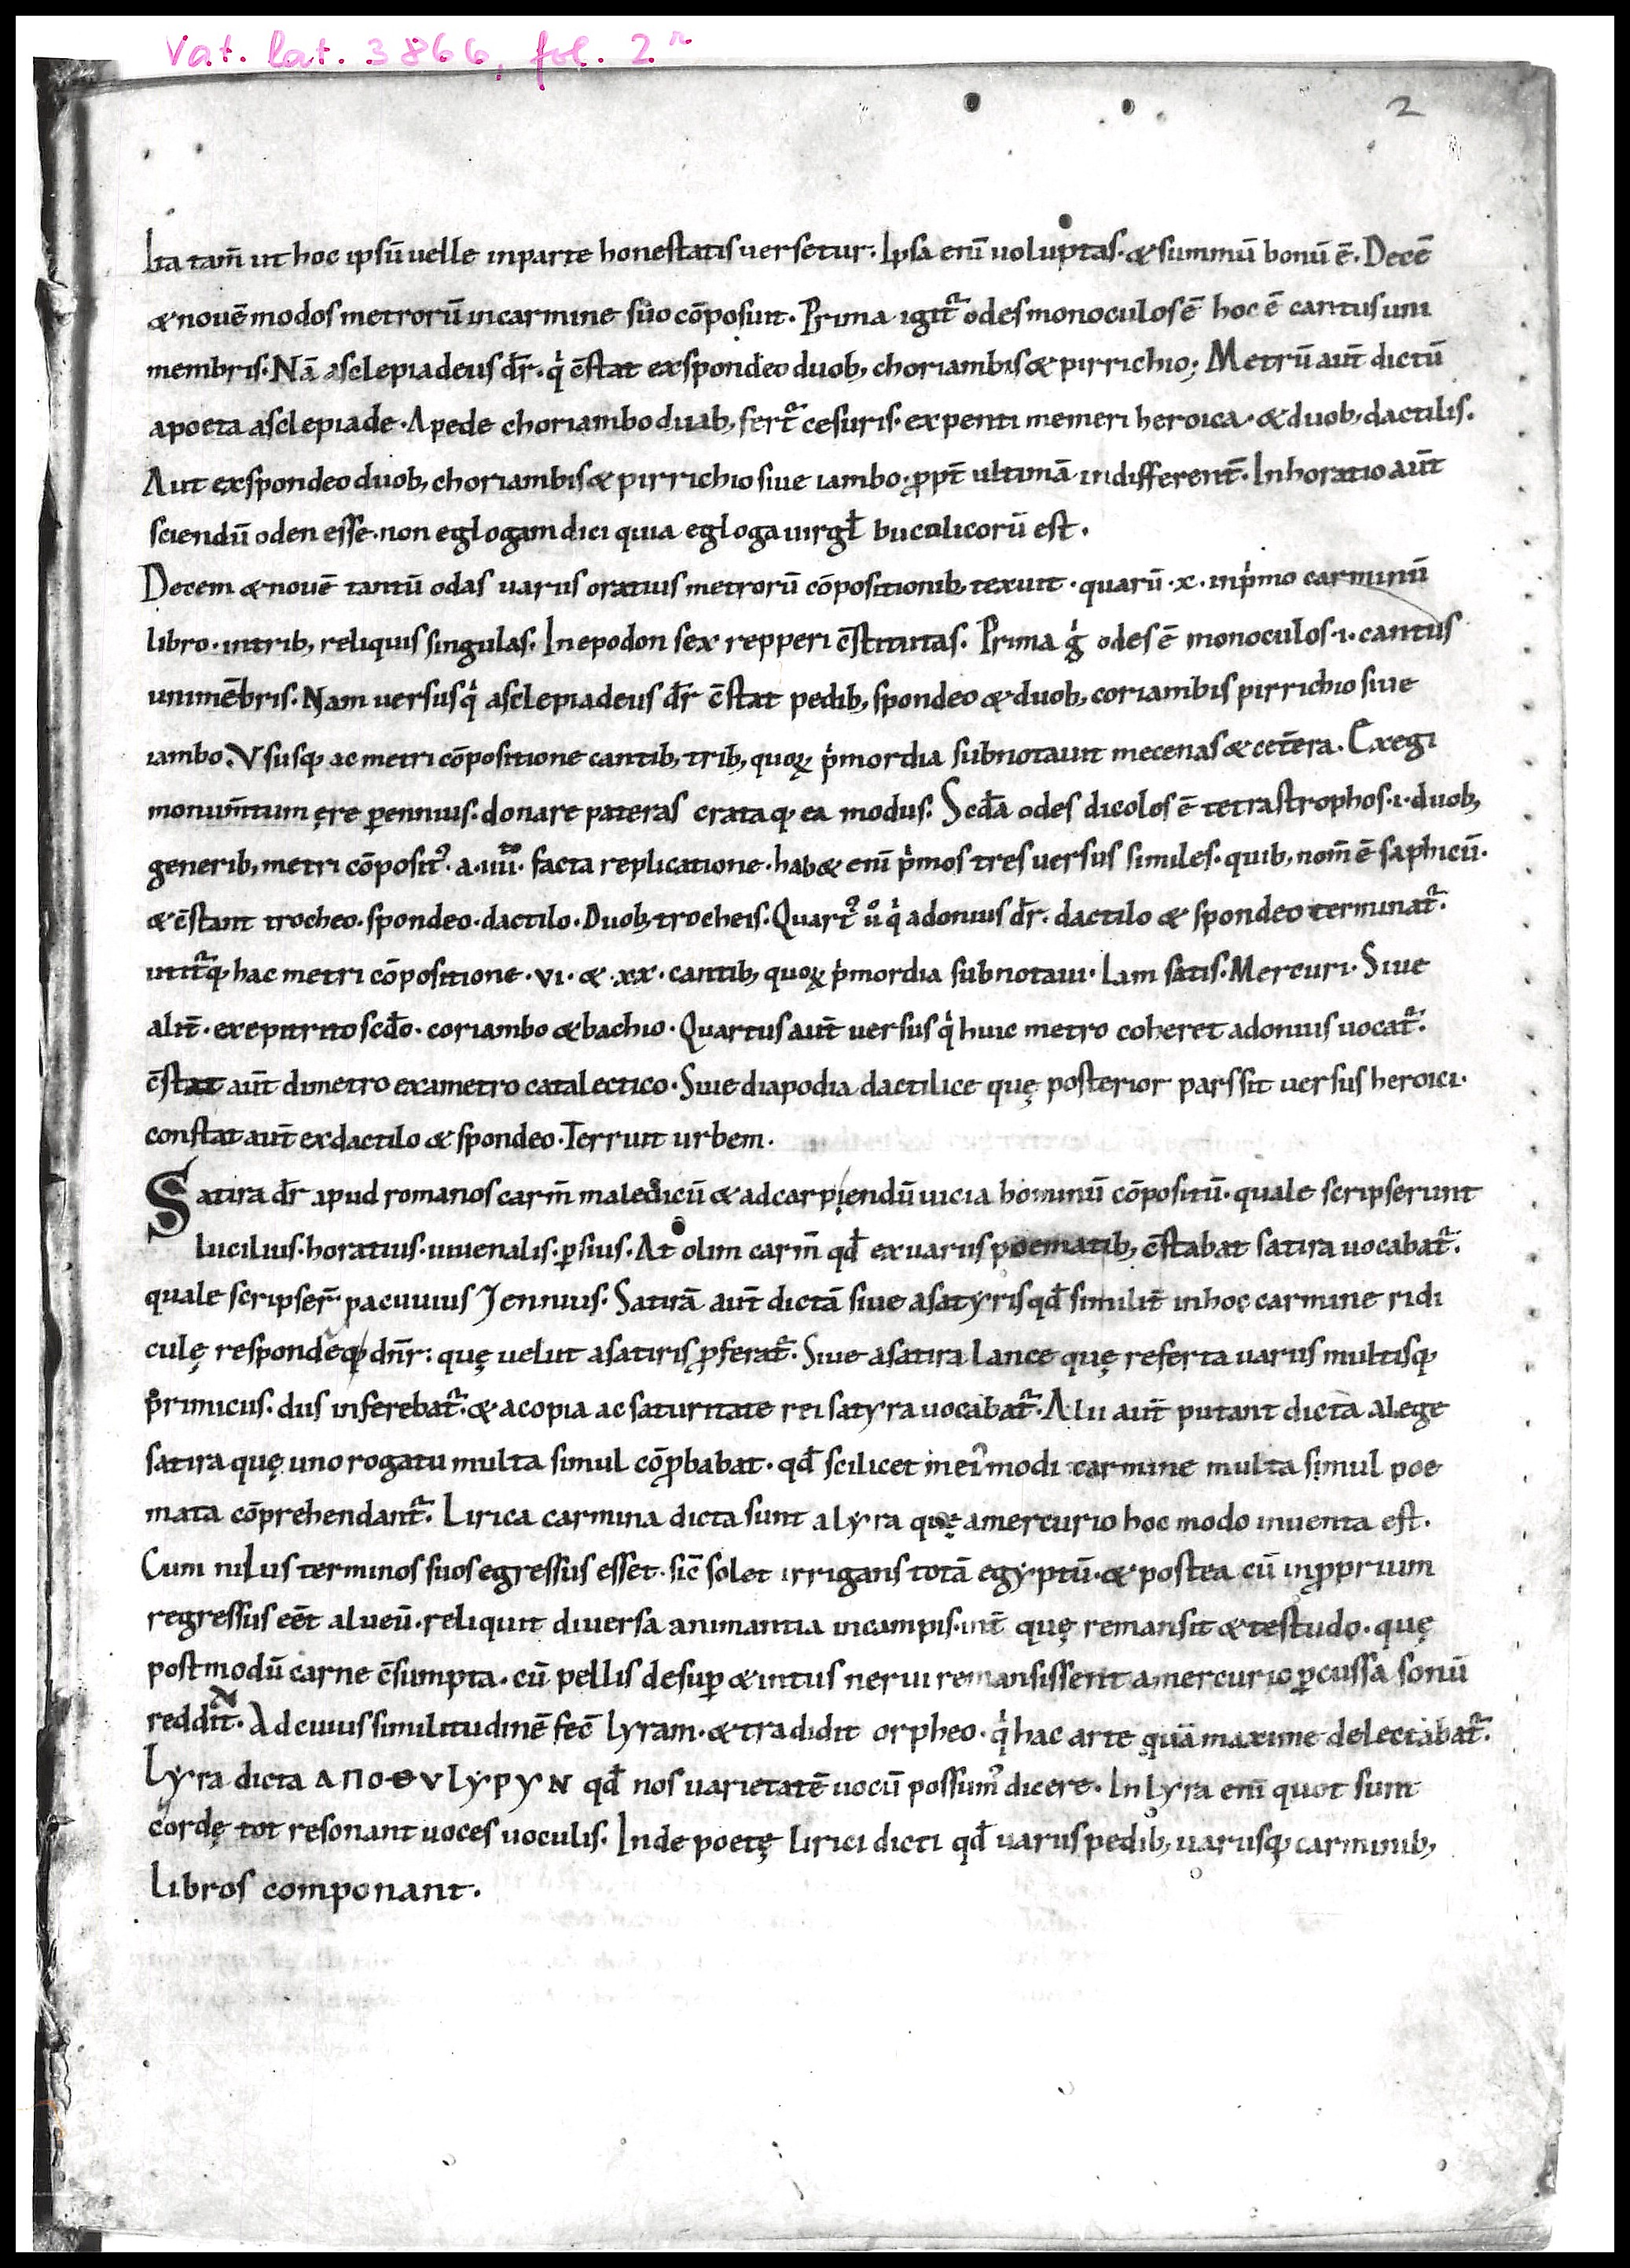 Vat. lat. 3866, fol. 2r
2
Ita tam̄ ut hoc ipsū uelle inparte honestatis uersetur. Ipsa enī uoluptas. & summū bonū ē. Decē
& nouē modos metrorū incarmine suo cōposuit. Prima igit᷑ odes monoculos ē hoc ē cantus uni
membris. Nā asclepiadeus dr̄. qͥ c̄stat exspondeo duob; choriambis & pirrichio; Metrū aut̄ dictū
apoeta asclepiade. Apede choriambo duab; fert᷑ cesuris. expenti memeri heroica. & duob; dactilis.
Aut exspondeo duob; choriambis & pirrichio siue iambo. ꝓpt̄ ultimā indifferent̄. Inhoratio aut̄
sciendū oden esse. non eglogam dici quia egloga uirgł bucolicorū est.
Decem & nouē tantū odas uariis oratius metrorū cōpositionib; texuit. quarū .x. inpͥmo carminū
libro. intrib; reliquis singulas. Inepodon sex repperi c̄stitutas. Prima gͥ odes ē monoculos .i. cantus
unimēbris. Nam uersus qͥ asclepiadeus dr̄ c̄stat pedib; spondeo & duob; coriambis pirrichio siue
iambo. Vsusq; ac metri cōpositione cantib; trib; quoꝝ pͥmordia subnotauit mecenas & cet̄era. Exegi
monum̄tum ęre ꝑennius. donare pateras crataq; ea modus. Scd̄a odes dicolos ē tetrastrophos .i. duob;
generib; metri cōposit᷒. a .iiii.to facta replicatione. hab& enī pͥmos tres uersus similes. quib; nom̄ ē saphicū.
& c̄stant trocheo. spondeo. dactilo. Duob; trocheis. Quart᷒ uͦ qͥ adonius dr̄. dactilo & spondeo terminat᷑.
utit᷑q; hac metri cōpositione .vi. & .xx. cantib; quoꝝ pͥmordia subnotaui. Iam satis. Mercuri. Siue
alit̄. exepitrito scd̄o. coriambo & bachio. Quartus aut̄ uersus qͥ huic metro coheret adonius uocat᷑.
c̄stat aut̄ dimetro exametro catalectico. Siue diapodia dactilice quę posterior pars sit uersus heroici.
constat aut̄ exdactilo & spondeo. Terruit urbem.
Satira dr̄ apud romanos carm̄ maledicū & adcarpiendū uicia hominū cōpositū. quale scripserunt
lucilius. horatius. iuuenalis. ꝑsius. At olim carm̄ qd̄ exuariis poematib; c̄stabat satira uocabat᷑.
quale scripser̄. pacuuius J ennius. Satirā aut̄ dictā siue asatyris qd̄ similit̄ inhoc carmine ridi
culę respondeq; dn̄r: quę uelut asatiris ꝓferat᷑. Siue asatira lance quę referta uariis multisq;
pͥrimicus. diis inferebat᷑. & acopia ac saturitate rei satyra uocabat᷑. Alii aut̄ putant dicta alege
satira quę uno rogatu multa simul cōꝓbabat. qd̄ scilicet ineiͥmodi carmine multa simul poe
mata cōprehendant᷑. Lirica carmina dicta sunt alyra quę amercurio hoc modo inuenta est.
Cum nilus terminos suos egressus esset. sic̄ solet irrigans totā egyptū. & postea cū inꝓprium
regressus eēt alueū. reliquit diuersa animantia incampis. int̄ quę remansit & testudo. quę
postmodū carne c̄sumpta. cū pellis desuꝑ & intus nerui remansissent amercurio ꝑcussa sonū
reddit. Ad cuius similitudinē fec̄ lyram. & tradidit orpheo. qͥ hac arte quā maxime delectabat᷑.
Lyra dicta ΑΠΟΘVlyPyN qd̄ nos uarietatē uocū possum᷒ dicere. Inlyra enī quot sunt
cordę tot resonant uoces uoculis. Inde poetę lirici dicti qd̄ uariis pedib; uariisq; carminib;
libros componant.